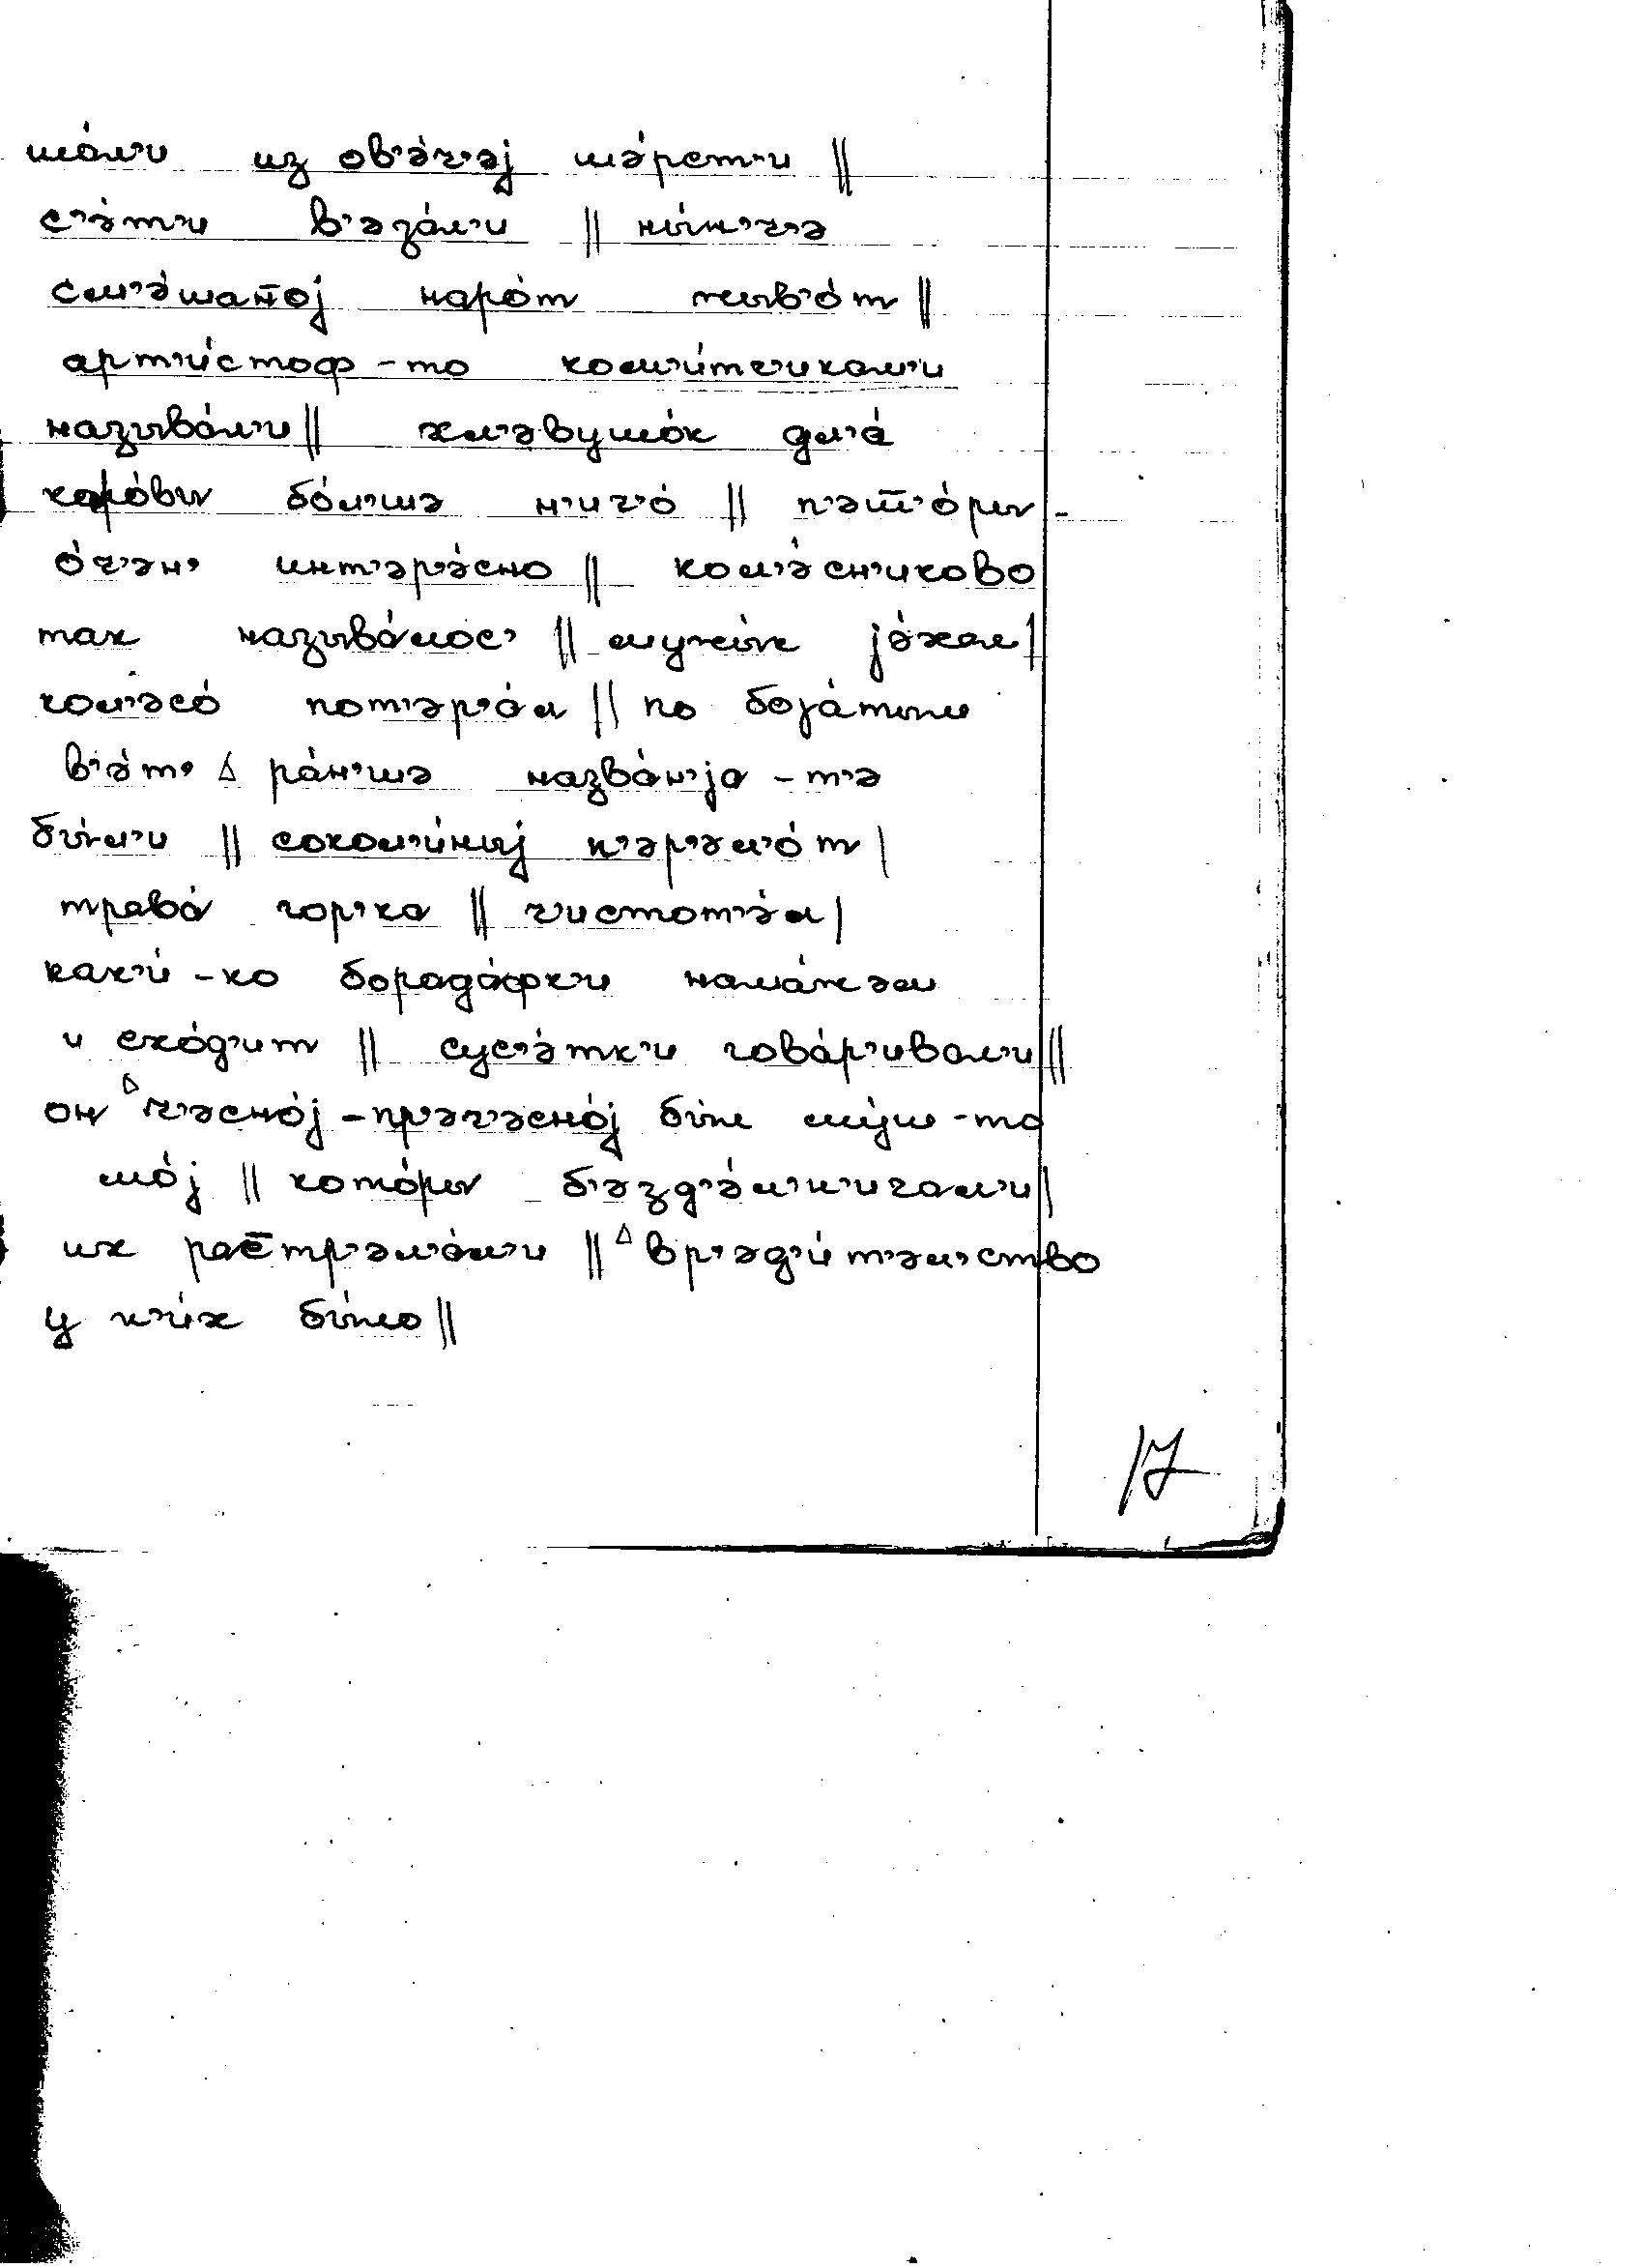 шáл'и из ов'э́ч'эj шэ́рст'и ||
с'э́т'и в'эзáл'и || ны́н'ч'э
см'э́шан̄оj нарóт жыв'óт ||
арт'и́стоф-то ком'и́тч'икам'и
называ́л'и || хл'эвушóк дл'á
карóвы бóл'шэ н'ич'ó || п'эт̄'óры -
óч'эн' инт'эр'э́сно || кол'э́сн'иково
так называ́лос' || мужы́к jэ́хал |
кол'эсó пот'эр'áл || по богáтым
в'э́т' ∆ рáн'шэ назвáн'jа -т'э
бы́л'и || сокол'и́ныj п'эр'эл'óт |
травá гор'ка || ч'истот'э́л |
как'и́ -ко борадáфк'и намáжэм
и схóд'ит || сус'э́тк'и говáр'ивал'и ||
он ∆ ч'эснój-пр'эч'эснój бы́л му́ш-то
мój || котóры б'эзд'э́л'н'ичал'и |
их рас̄тр'эл'áл'и || ∆ вр'эд'и́т'эл'ство
у н'и́х бы́ло ||
17